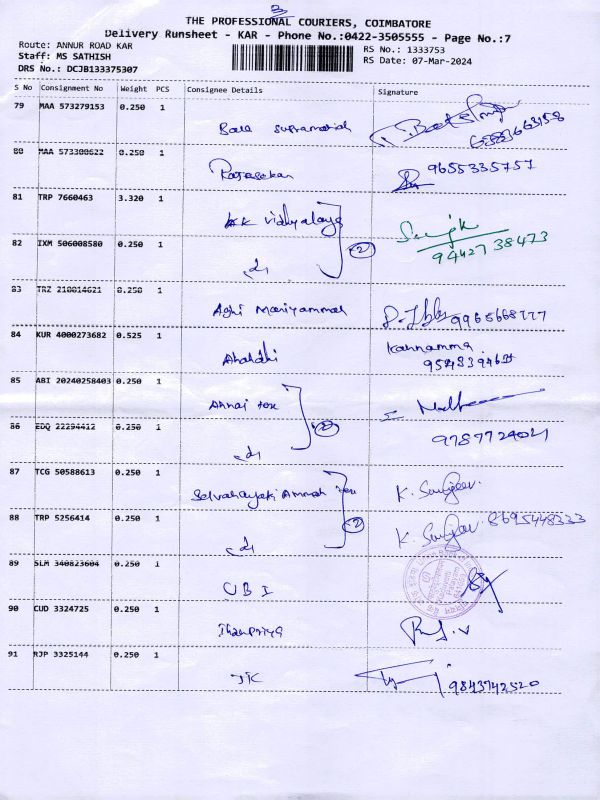 THE PROFESSIONAL COURIERS, COIMBATORE
Delivery Runsheet - KAR - Phone No.:0422-3505555 - Page No.:7
Route: ANNUR ROAD KAR
RS No.: 1333753
Staff: MS SATHISH
RS Date: 07-Mar-2024
DRS No.: DCJB133375307
S No Consignment No Weight PCS Consignee Details Signature
79 MAA 573279153 0.250 1
80 MAA 573300622 0.250 1 9655335757
Rajasekar
81 TRP 7660463 3.320 1
KK Vidhyalaya
82 IXM 506008580 0.250 1 2
9442738473
83 TRZ 210014621 0.250 1
Aghi Mariyammal 9965668777
84 KUR 4000273682 0.525 1 Kannamma
85 ABI 20240258403 0.250 1
Annai tex
86 EDQ 22294412 0.250 1 2
9787724021
87 TCG 50588613 0.250 1
Selvanayaki Ammah tex K. Sanjeev.
88 TRP 5256414 0.250 1 2 K. Sanjeev. 8695448333
89 SLM 340823604 0.250 1
UBI
90 CUD 3324725 0.250 1
Thanpriya
91 RJP 3325144 0.250 1
JK 9843742520